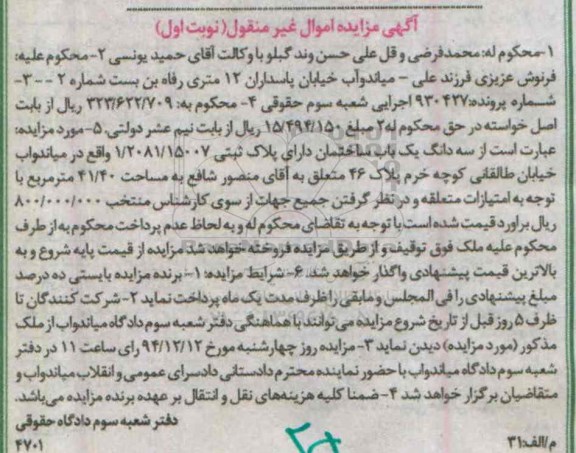 آگهی مزایده اموال غیر منقول(نوبت اول)
۱-محکوم له: محمدفرضی و قل علی حسن وند گبلو با وکالت آقای حمید یونسی ۲-محکوم علیه:
فرنوش عزیزی فرزند علی – میاندوآب خیابان پاسداران ۱۲ متری رفاه بن بست شماره ۲ - -۳-
شماره پرونده: ۹۳۰۴۲۷ اجرایی شعبه سوم حقوقی ۴- محکوم به: ۳۲۳/۶۲۲/۷۰۹ ریال از بابت
اصل خواسته در حق محکوم له۲ مبلغ ۱۵/۴۹۴/۱۵۰ ریال از بابت نیم عشر دولتی. ۵-مورد مزایده:
عبارت است از سه دانگ یک باب ساختمان دارای پلاک ثبتی ۱/۲۰۸۱/۱۵۰۰۷ واقع در میاندواب
خیابان طالقانی کوچه خرم پلاک ۴۶ متعلق به آقای منصور شافع به مساحت ۴۱/۴۰ مترمربع با
توجه به امتیازات متعلقه و در نظر گرفتن جمیع جهات از سوی کارشناس منتخب ۸۰۰/۰۰۰/۰۰۰
ریال براورد قیمت شده است با توجه به تقاضای محکوم له و به لحاظ عدم پرداخت محکوم به از طرف
محکوم علیه ملک فوق توقیف و از طریق مزایده فروخته خواهد شد مزایده از قیمت پایه شروع و به
بالاترین قیمت پیشنهادی واگذار خواهد شد. ۶- شرایط مزایده: ۱- برنده مزایده بایستی ده درصد
مبلغ پیشنهادی را فی المجلس و مابقی را ظرف مدت یک ماه پرداخت نماید ۲- شرکت کنندگان تا
ظرف ۵ روز قبل از تاریخ شروع مزایده می‌توانند با هماهنگی دفتر شعبه سوم دادگاه میاندواب از ملک
مذکور (مورد مزایده) دیدن نماید ۳- مزایده روز چهارشنبه مورخ ۹۴/۱۲/۱۲ رای ساعت ۱۱ در دفتر
شعبه سوم دادگاه میاندواب با حضور نماینده محترم دادستانی دادسرای عمومی و انقلاب میاندواب و
متقاضیان برگزار خواهد شد ۴- ضمنا کلیه هزینه‌های نقل و انتقال بر عهده برنده مزایده می‌باشد.
دفتر شعبه سوم دادگاه حقوقی
م/الف:۳۱ ۴۷۰۱